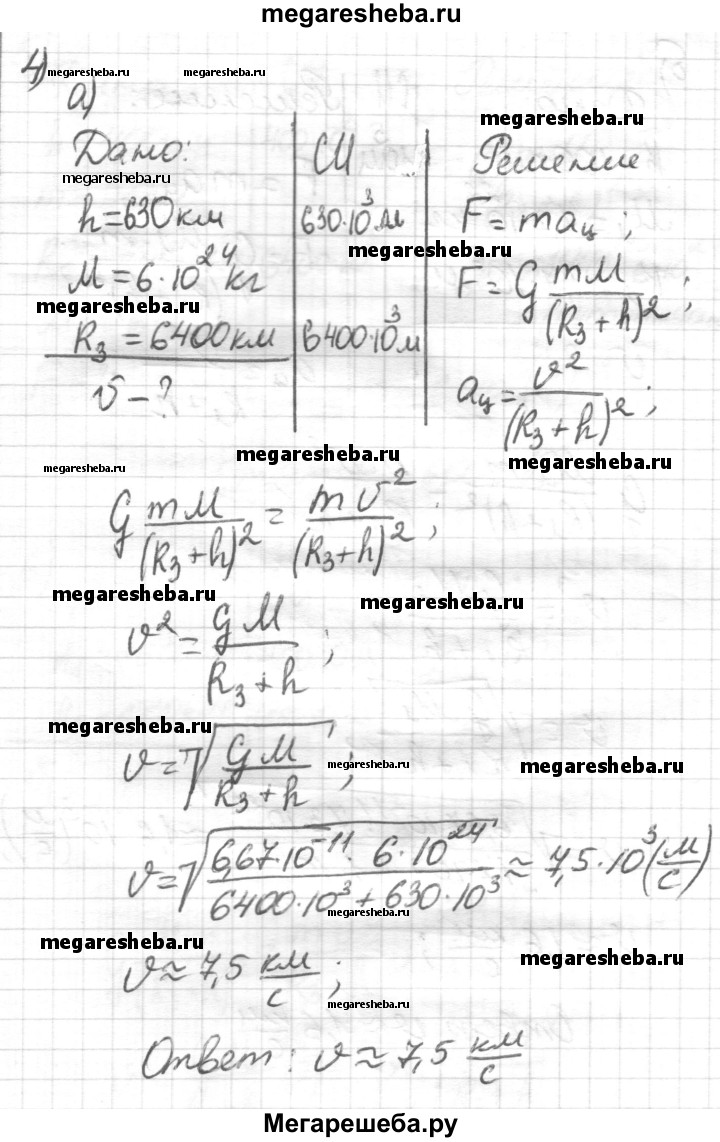 megaresheba.ru
4)
megaresheba.ru megaresheba.ru
а)
megaresheba.ru
Дано: СИ Решение
megaresheba.ru
h=630км 630·10³м F=maц;
megaresheba.ru
M=6·10²⁴кг F=G mM/(Rз+h)²;
megaresheba.ru
Rз=6400км 6400·10³м
v-? aц=v²/(Rз+h)²;
megaresheba.ru megaresheba.ru
megaresheba.ru
G mM/(Rз+h)² = mv²/(Rз+h)²;
megaresheba.ru megaresheba.ru
v²=GM/(Rз+h);
megaresheba.ru
v=√(GM/(Rз+h));
megaresheba.ru megaresheba.ru
v=√((6,67·10⁻¹¹·6·10²⁴)/(6400·10³+630·10³))≈7,5·10³(м/с)
megaresheba.ru
megaresheba.ru megaresheba.ru
v≈7,5 км/с;
megaresheba.ru
Ответ: v≈7,5 км/с
Мегарешеба.ру